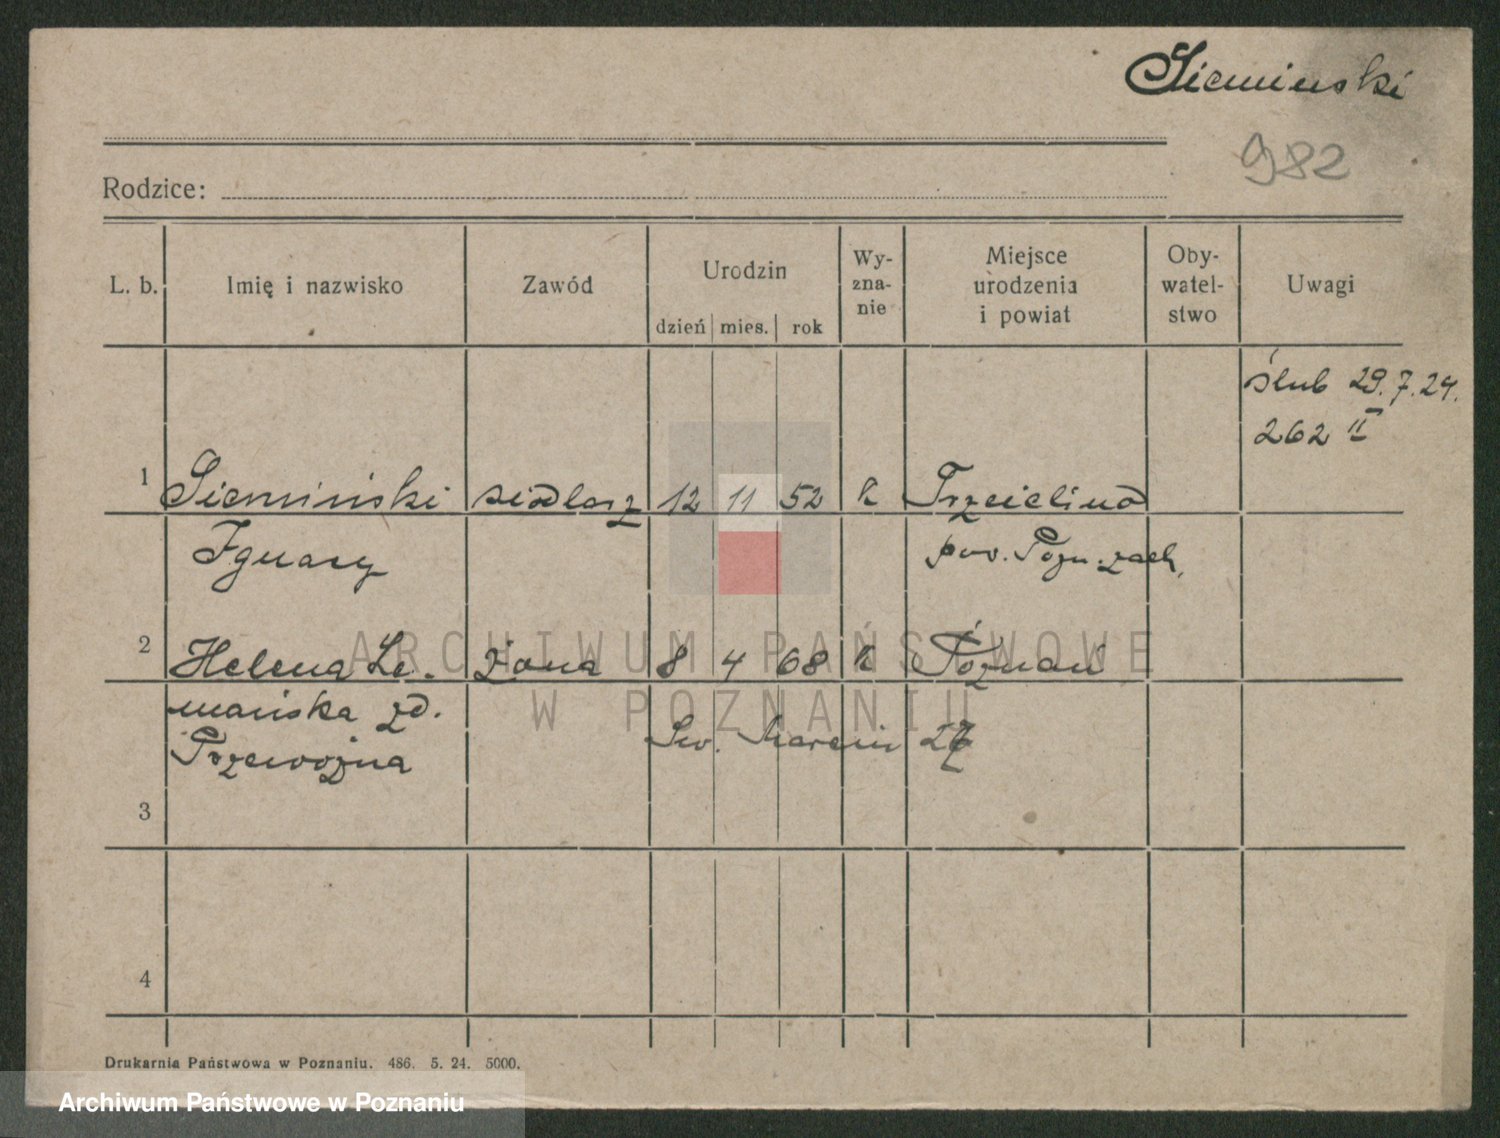 Siemiński
982
Rodzice:
L. b. Imię i nazwisko Zawód Urodzin dzień mies. rok Wy-zna-nie Miejsce urodzenia i powiat Oby-watel-stwo Uwagi
ślub 29.7.24.
262 II
1 Siemiński siodlarz 12 11 52 k Trzcielino
Ignacy pow. Pozn. zach.
2 Helena Le- żona 8 4 68 k Poznań
mańska zd.
Św. Marcin
Przewoźna
3
4
Drukarnia Państwowa w Poznaniu. 486. 5. 24. 5000.
ARCHIWUM PAŃSTWOWE
W POZNANIU
Archiwum Państwowe w Poznaniu